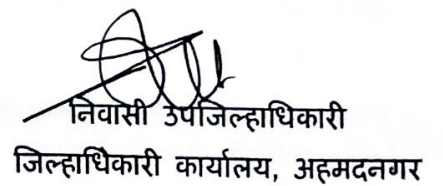 निवासी उपजिल्हाधिकारी
जिल्हाधिकारी कार्यालय, अहमदनगर